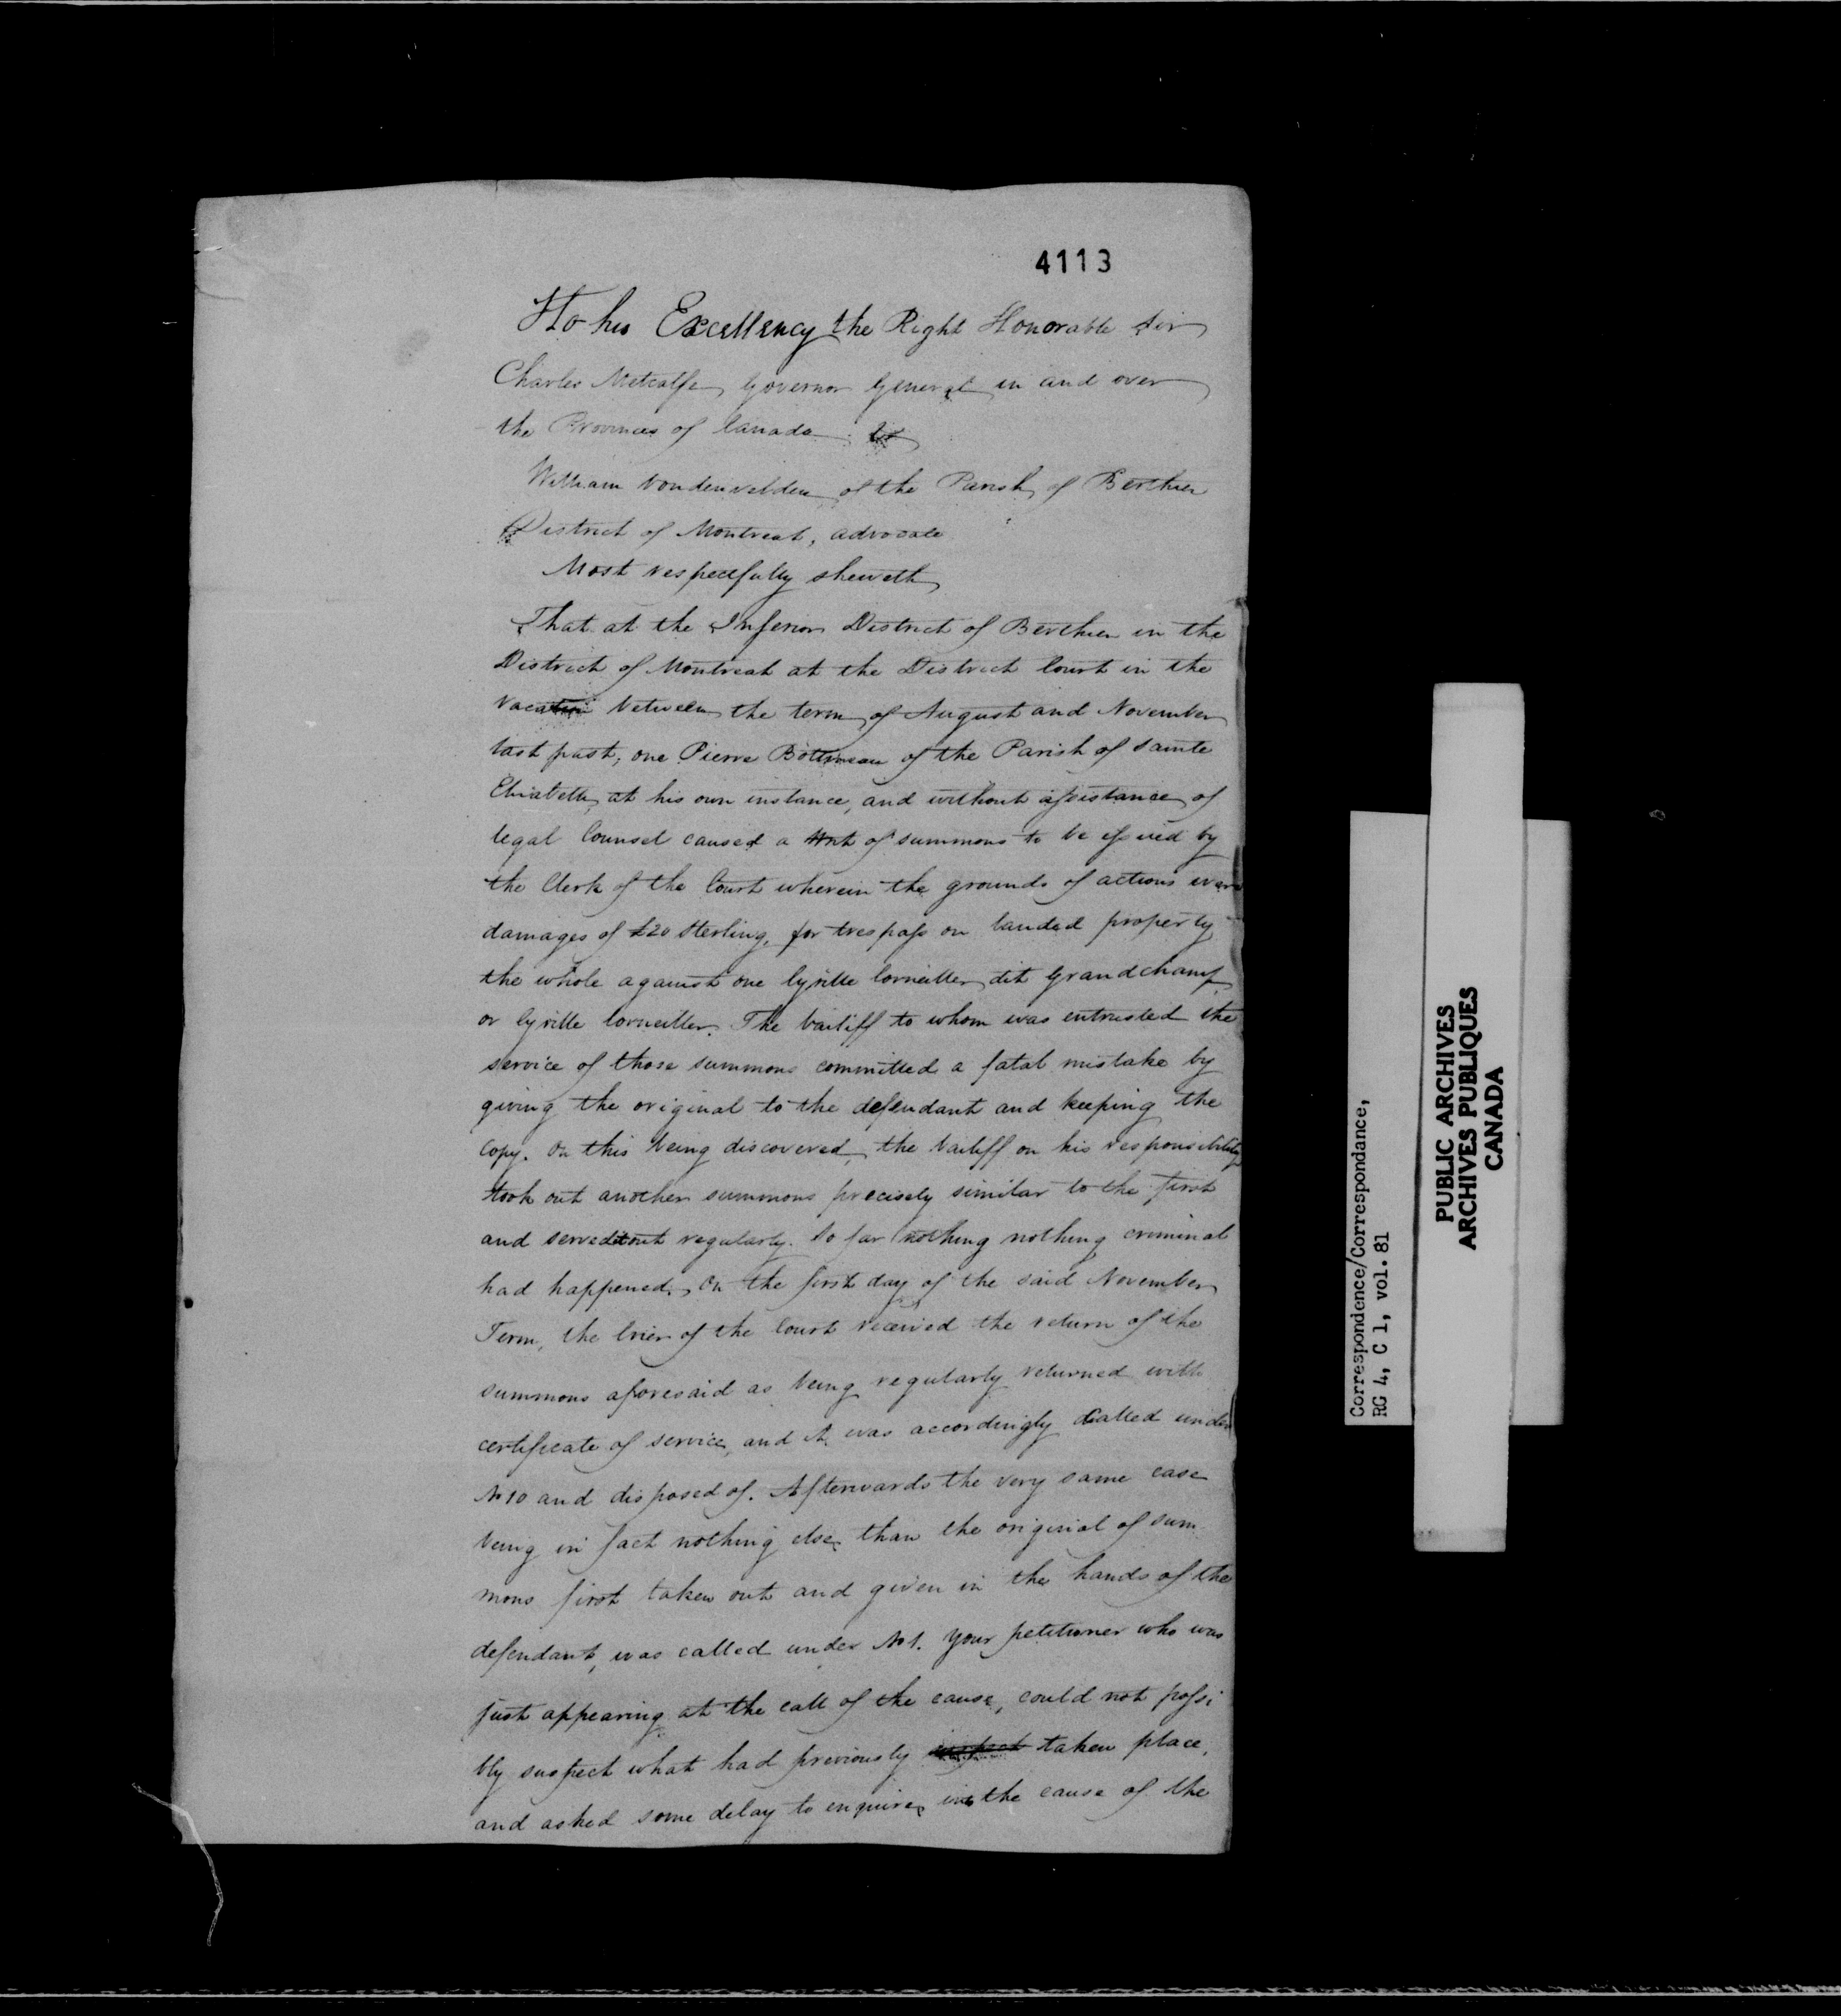 4113
To his Excellency the Right Honorable Sir
Charles Metcalfe, Governor General in and over
the Provinces of Canada &
William Vondenvelden of the Parish of Berthier
District of Montreal, advocate
Most respectfully sheweth
That at the Inferior District of Berthier in the
District of Montreal at the District Court in the
vacation between the term of August and November
last past, one Pierre Bottineau of the Parish of Sainte
Elizabeth, at his own instance, and without assistance of
legal Counsel caused a Writ of summons to be issued by
the Clerk of the Court wherein the grounds of actions were
damages of £20 Sterling, for trespass on landed property
the whole against one Cyrille Cornellier dit Grandchamp
or Cyrille Cornellier. The bailiff to whom was entrusted the
service of those summons committed a fatal mistake by
giving the original to the defendant and keeping the
copy. On this being discovered, the bailiff on his responsibility
took out another summons precisely similar to the first
and served it out regularly. So far nothing nothing criminal
had happened, On the first day of the said November
Term, the Crier of the Court received the return of the
summons aforesaid as being regularly returned with
certificate of service, and it was accordingly called under
No 10 and disposed of. Afterwards the very same case
being in fact nothing else than the original of sum
mons first taken out and given in the hands of the
defendant, was called under No 1. Your petitioner who was
just appearing at the call of the cause, could not possi
bly suspect what had previously taken place,
and asked some delay to enquire into the cause of the
Correspondence/Correspondance,
RG 4, C 1, vol. 81
PUBLIC ARCHIVES
ARCHIVES PUBLIQUES
CANADA